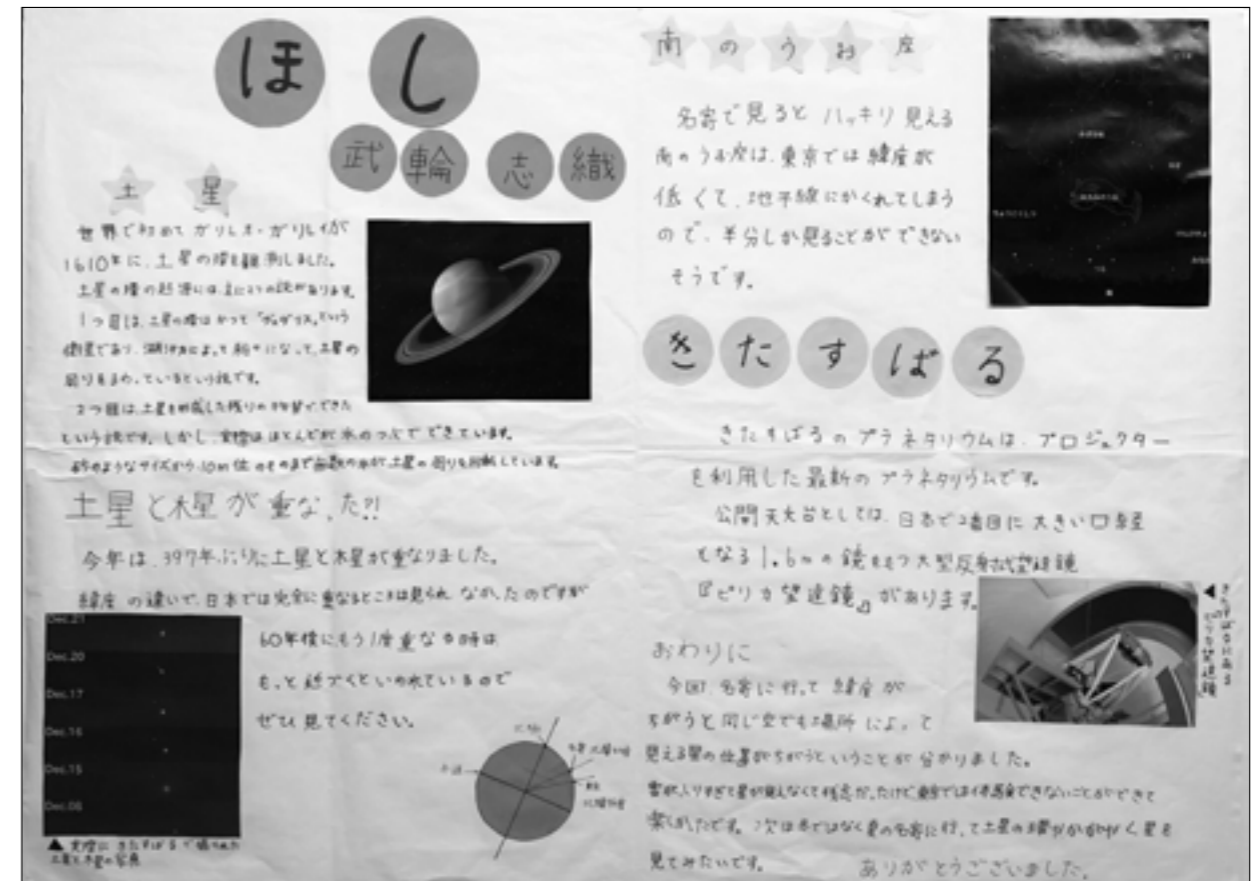 ほし
武輪 志織
土星
世界で初めてガリレオ・ガリレイが
1610年に、土星の環を観測しました。
土星の環の起源には、主に2つの説があります。
1つ目は、土星の環はかつて という
衛星であり、潮汐力によって粉々になって、土星の
周りをまわっているという説です。
2つ目は、土星を形成した残りの物質でできた
という説です。しかし、実際はほとんどが氷のつぶでできています。
砂のようなサイズから10m位のものまで無数の氷が土星の周りを回転しています。
土星と木星が重なった?!
今年は、397年ぶりに土星と木星が重なりました。
緯度の違いで、日本では完全に重なるところは見られなかったのですが
60年後にもう1度重なる時は
もっと近づくといわれているので
ぜひ見てください。
Dec.21
Dec.20
Dec.17
Dec.16
Dec.15
Dec.06
▲実際にきたすばるで撮られた
土星と木星の写真
南のうお座
名寄で見るとハッキリ見える
南のうお座は、東京では緯度が
低くて、地平線にかくれてしまう
ので、半分しか見ることができない
そうです。
きたすばる
きたすばるのプラネタリウムは、プロジェクター
を利用した最新のプラネタリウムです。
公開天文台としては、日本で2番目に大きい口径
となる1.6mの鏡をもつ大型反射式望遠鏡
『ピリカ望遠鏡』があります。
▲きたすばるにある
『ピリカ望遠鏡』
おわりに
今回、名寄に行って緯度が
ちがうと同じ空でも場所によって
見える星の位置がちがうということが分かりました。
雲が入りすぎて星が見えなくて残念だったけど、東京では体験できないことができて
楽しかったです。次は冬ではなく夏の名寄に行って土星の環がかがやく星を
見てみたいです。
ありがとうございました。